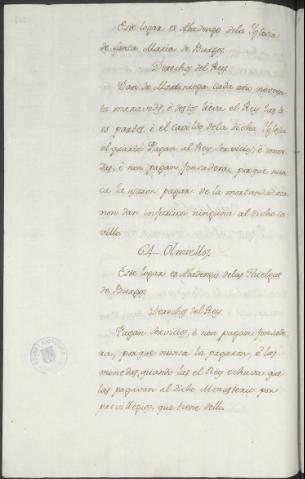 Este logar es Abadengo dela Iglesia
de Santa Maria de Burgos.
Derechos del Rey.
Dan de Martiniega cada año noven
ta maravedis, é destos lieva el Rey las tr
es partes, é el cavildo dela dicha Iglesia
el quarto. Pagan al Rey servicios, é mone
das, é non pagan fonsadera, porque nun
ca la usaron pagar: de la mortandad acá
non dan infurcion ninguna al dicho ca
villo.
64 Olmiellos.
Este logar es Abadengo delas Huelgas
de Burgos.
Derechos del Rey.
Pagan servicios, é non pagan fonsade
ra, porque nunca la pagaron, é las
monedas, quando las el Rey echava que
las pagavan al dicho Monasterio por
previllegio, que tiene dello.